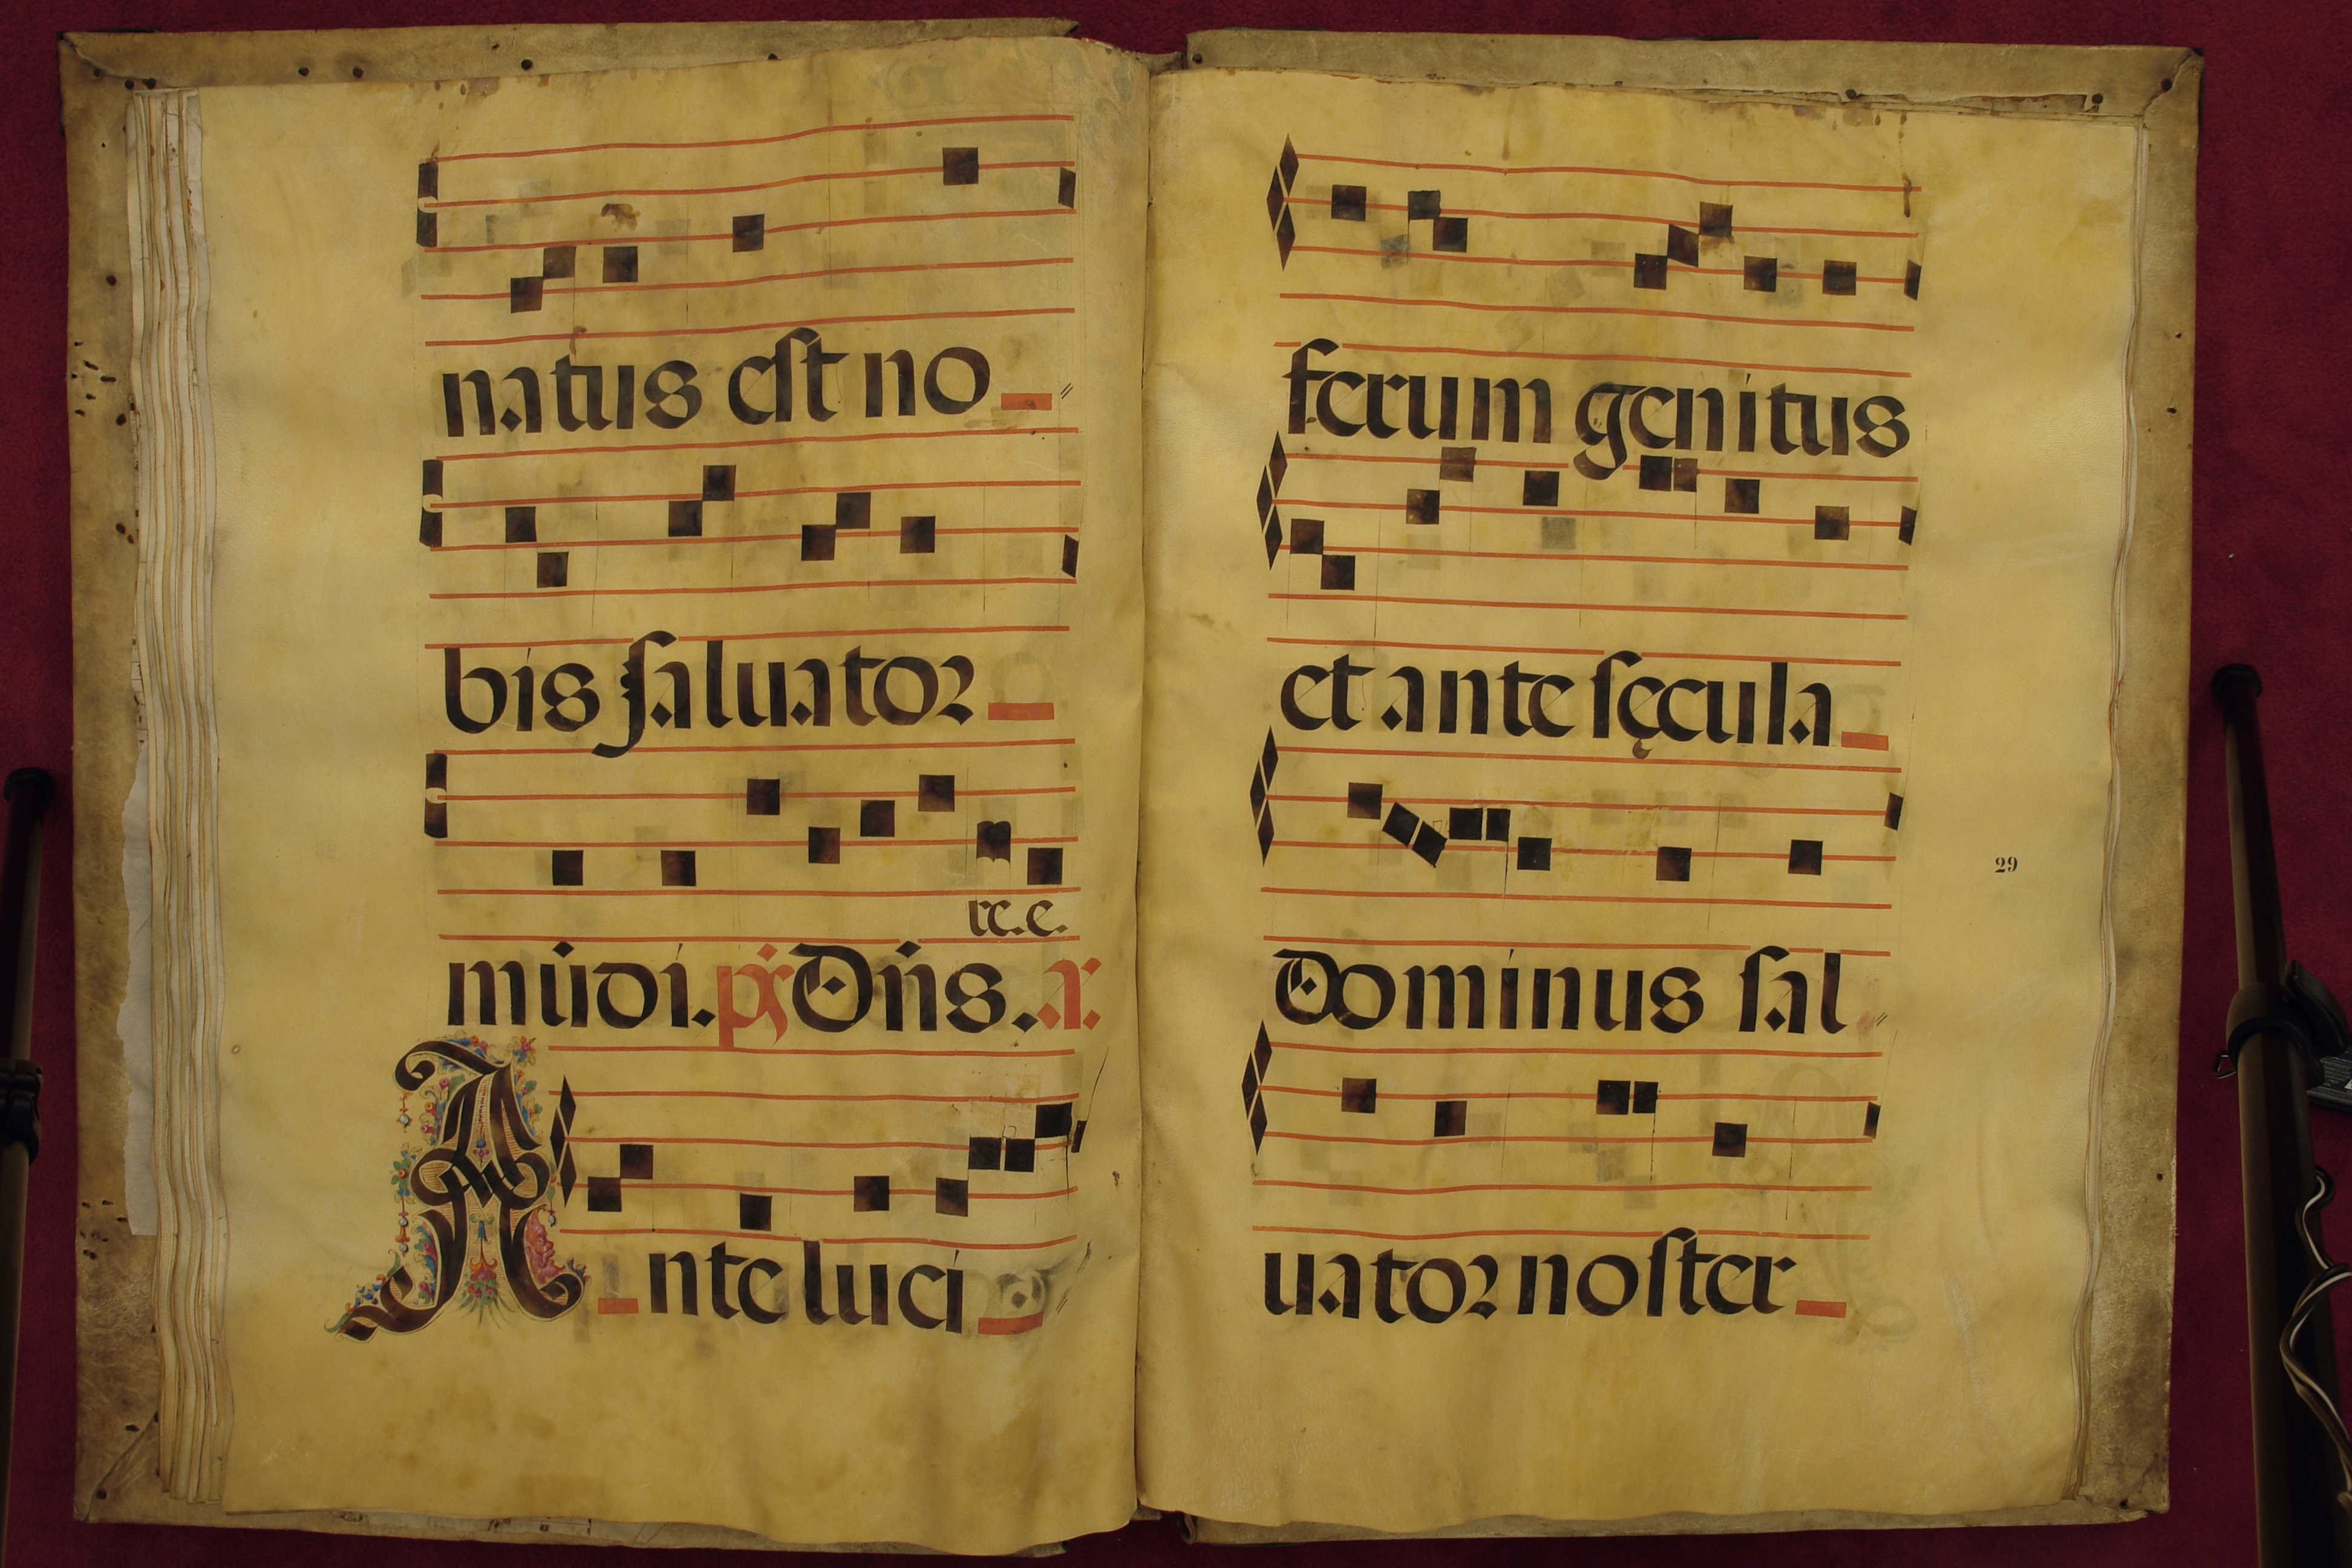 natus est no
bis saluator
re. e.
mūdi. ps̄ Dn̄s. a.
Ante luci
ferum genitus
et ante sęcula
29
Dominus sal
uator noster